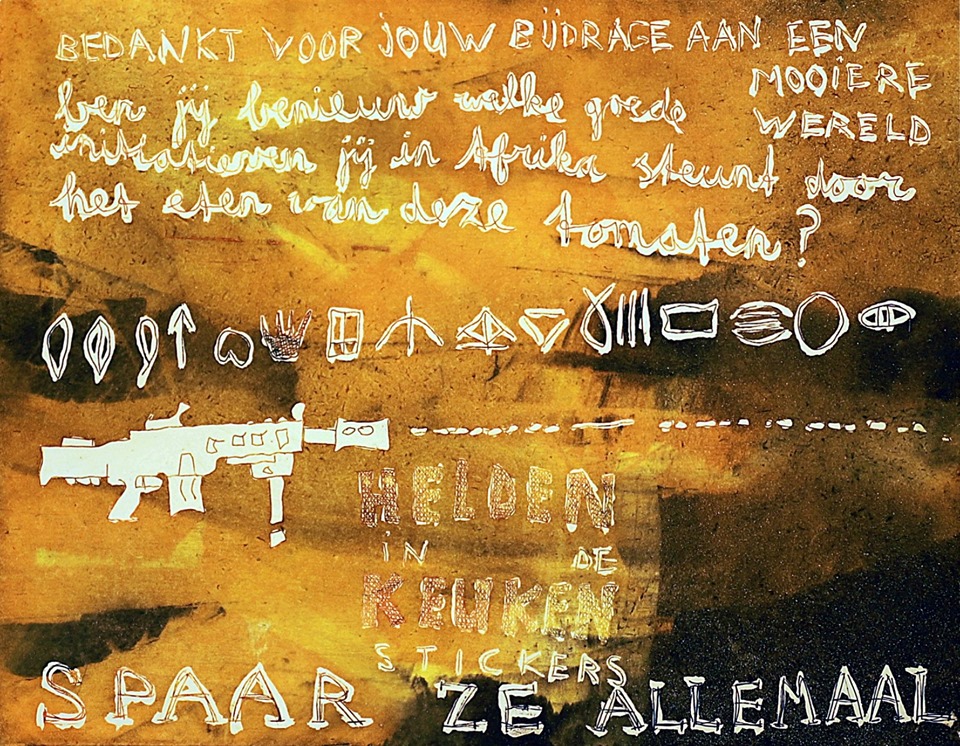 BEDANKT VOOR JOUW BIJDRAGE AAN EEN
MOOIERE
WERELD
ben jij benieuwd welke goede
initiatieven jij in Afrika steunt door
het eten van deze tomaten?
HELDEN
iN DE
KEUKEN
STICKERS
SPAAR ZE ALLEMAAL